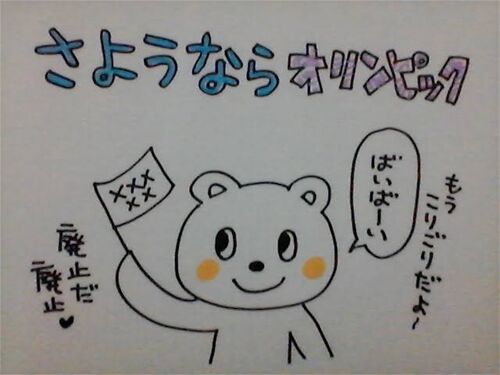 さようならオリンピック
ばいばーい
もう
こりごりだよ～
廃止だ
廃止♥